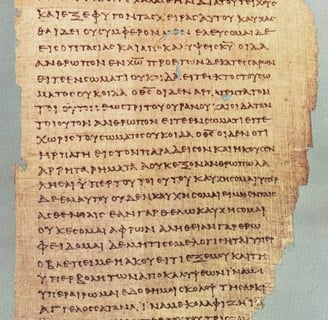 ΔΙΑΤΟΥΤΕΙΧΟΥϹ
ΚΑΙΕΞΕΦΥΓΟΝΤΑϹΧΕΙΡΑϹΑΥΤΟΥΚΑΥΧΑϹ
ΘΑΙΔΕΙΟΥϹΥΜΦΕΡΟΝΜΕΝΕΛΕΥϹΟΜΑΙΔΕ
ΕΙϹΟΠΤΑϹΙΑϹΚΑΙΑΠΟΚΑΛΥΨΕΙϹΚΥ ΟΙΔΑ
ΑΝΘΡΩΠΟΝΕΝΧΡΩΠΡΟΕΤΩΝΔΕΚΑΤΕϹϹΑΡΩΝ
ΕΙΤΕΕΝϹΩΜΑΤΙΟΥΚΟΙΔΑΕΙΤΕΕΚΤΟϹΤΟΥϹΩ
ΜΑΤΟϹΟΥΚΟΙΔΑΟΘϹΟΙΔΕΝΑΡΠΑΓΕΝΤΑ
ΕΩϹΤΡΙΤΟΥΟΥΡΑΝΟΥΚΑΙΟΙΔΑΤΟΝ
ΤΟΙΟΥΤΟΝΑΝΘΡΩΠΟΝΕΙΤΕΕΝϹΩΜΑΤΙΕΙΤΕ
ΧΩΡΙϹΤΟΥϹΩΜΑΤΟϹΟΥΚΟΙΔΑΟΘϹΟΙΔΕΝΟΤΙ
ΗΡΠΑΓΗΕΙϹΤΟΝΠΑΡΑΔΕΙϹΟΝΚΑΙΗΚΟΥϹΕΝ
ΑΡΡΗΤΑΡΗΜΑΤΑΑΟΥΚΕΞΟΝΑΝΘΡΩΠΩΛΑ
ΛΗϹΑΙΫΠΕΡΤΟΥΤΟΙΟΥΤΟΥΚΑΥΧΗϹΟΜΑΙΫΠΕΡ
ΔΕΕΜΑΥΤΟΥΟΥΔΕΝΚΑΥΧΗϹΟΜΑΙΕΙΜΗΕΝΤΑΙϹ
ΑϹΘΕΝΕΙΑΙϹΕΑΝΓΑΡΘΕΛΩΚΑΥΧΗϹΟΜΑΙ
ΟΥΚΕϹΟΜΑΙΑΦΡΩΝΑΛΗΘΕΙΑΝΓΑΡΕΡΩ
ΦΕΙΔΟΜΑΙΔΕΜΗΤΙϹΕΜΕΛΟΓΙϹΗΤΑΙΫΠΕΡ
ΟΒΛΕΠΕΙΜΕΗΑΚΟΥΕΙΤΙΕΞΕΜΟΥΚΑΙΤΗ
ΫΠΕΡΒΟΛΗΤΩΝΑΠΟΚΑΛΥΨΕΩΝΪΝΑΜΗ
ΫΠΕΡΑΙΡΩΜΑΙΕΔΟΘΗΜΟΙϹΚΟΛΟΨΤΗϹΑΡΚΙ
ΑΓΓΕΛΟϹϹΑΤΑΝΑ ΪΝΑΜΕΚΟΛΑΦΙΖΗ